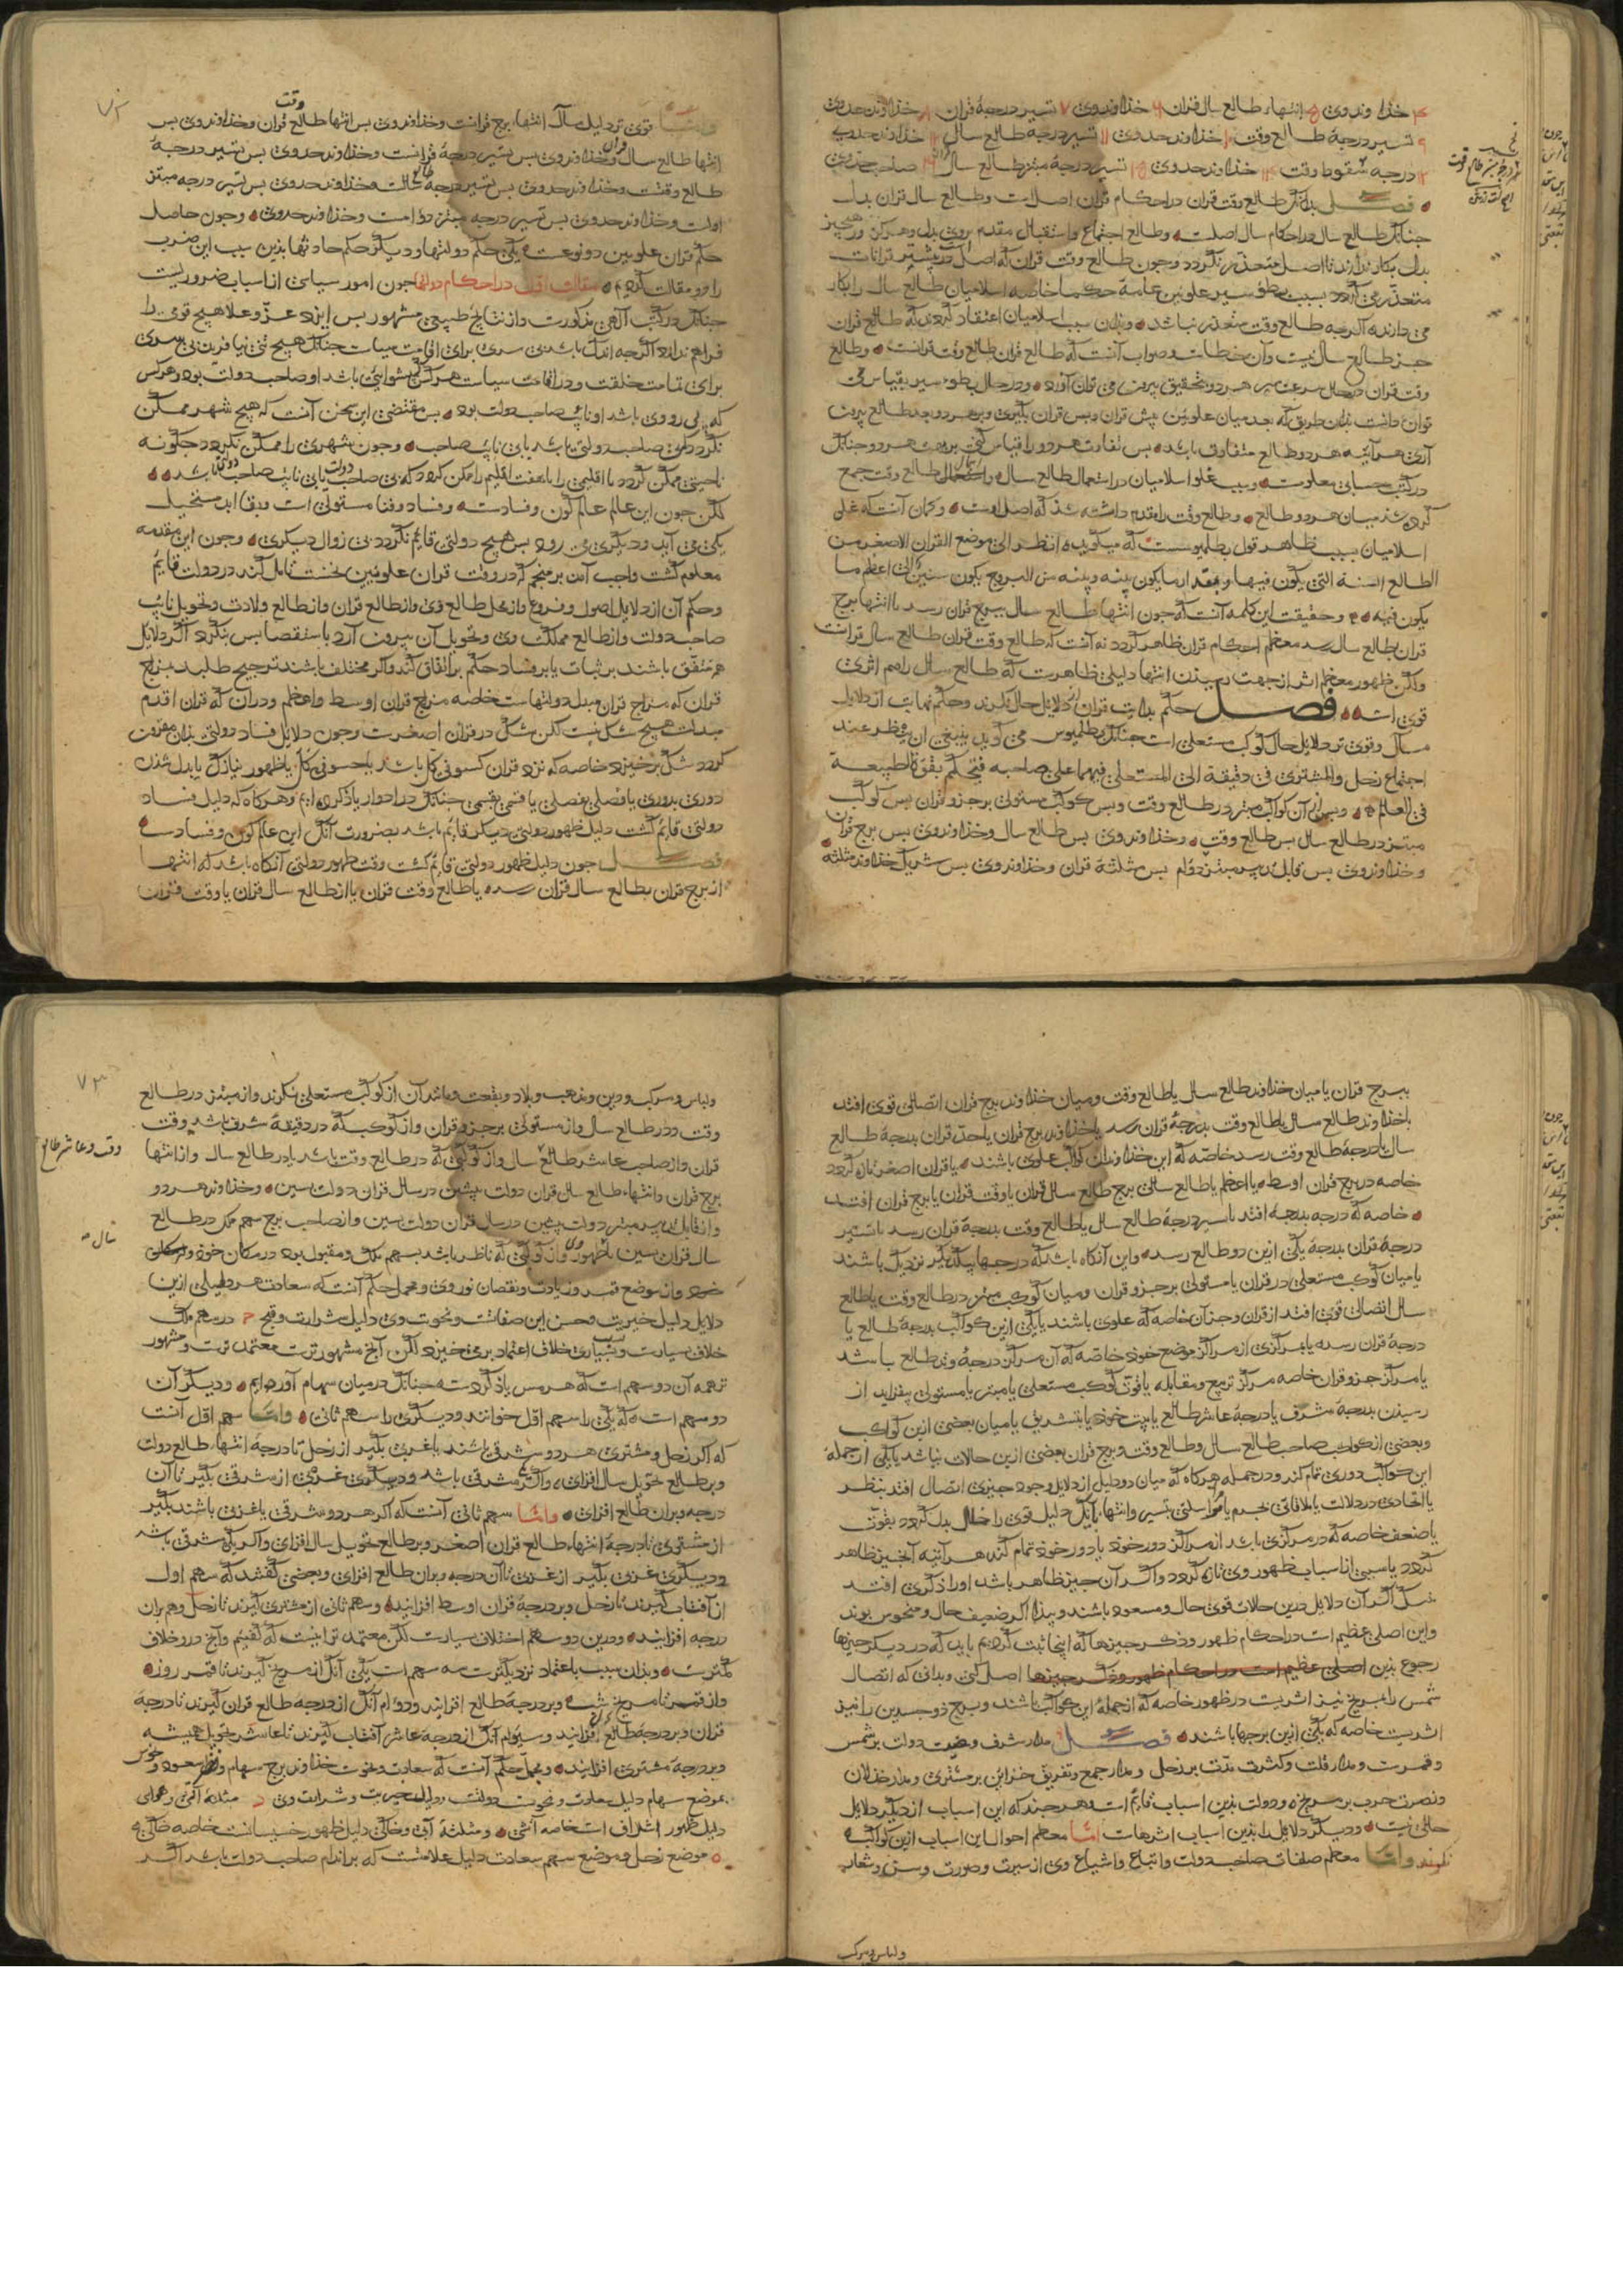 خذاوند وی ۵ انتهاء طالع سال قران ۶ خذاوند وی ۷ تسییر درجهٔ قران ۸ خذاوند حد وی
۹ تسییر درجهٔ طالع وقت ۱۰ خذاوند حد وی ۱۱ تسییر درجه طالع سال ۱۲ خذاوند حد وی
درجه وقت خذاوند حد وی تسییر درجهٔ مبتز طالع سال
فصل بدانک طالع وقت قران در احکام قران اصل است و طالع سال قران بدل
جنانک طالع سال در احکام سال اصلست و طالع اجتماع و استقبال مقدم بروی بدل و هرکز در هیچ جیز
بدل بکار ندارند تا اصل متعذر نکردد وجون طالع وقت قران که اصل است در بیشتر قرانات
متعذر می کردد بسبب بطؤ سیر علویین عامهٔ حکما خاصه اسلامیان طالع سال را بکار
می دارند اکرجه طالع وقت متعذر نباشد و بذان سبب اسلامیان اعتقاد کردند که طالع قران
جز طالع سال نیست و آن خطاست و صواب آنست که طالع قران طالع وقت قرانست و طالع
وقت قران در حال سرعت سیر هر دو بتحقیق بیرون می توان آورد و در حال بطوء سیر بقیاس می
توان دانست بذان طریق که بعد میان علویین پیش قران و پس قران بکیری و بهر دو بعد طالع بیرون
آری هر آینه هر دو طالع متفاوت باشد پس تفاوت هر دو را قیاس کنی بر وقت هر دو جنانک
در کتب حسابی معلومست و سبب غلو اسلامیان در استعمال طالع سال و استعمال طالع وقت جمع
کرده شذ میان هر دو طالع و طالع وقت را مقدم داشته شذ که اصل اوست و کمان آنست که غلو
اسلامیان بسبب ظاهر قول بطلمیوست که میکوید انظر الی موضع القران الاصغر من
الطالع السنة التی یکون فیها و بقدر ما یکون بینه و بینه من البروج یکون سنین ذلک اعظم ما
یکون فیه و حقیقت این کلمه آنست که جون انتهاء طالع سال ببرج قران رسد یا انتهاء برج
قران بطالع سال رسد معظم احکام قران ظاهر کردد نه آنست که طالع وقت قران طالع سال قرانست
ولکن ظهور معظم اثر از جهت رسیدن انتها دلیلی ظاهرست که طالع سال را هم اثری
قوی است فصل حکم بدایت قران از دلایل حال کنند و حکم نهایت از دلایل
مآل و قوی تر دلایل حال کوکب مستعلی است جنانک بطلمیوس می کوید ینبغی ان ینظر عند
اجتماع زحل والمشتری فی دقیقة الی المستعلی فیهما علی صاحبه فیحکم بقوة طبیعة
فی العالم و پس از آن کوکب مبتز در طالع وقت و پس کوکب مستولی بر جزو قران پس کوکب
مبتز در طالع سال پس طالع وقت و خذاوند وی پس طالع سال و خذاوند وی پس برج قران
و خذاوند وی پس قابل تدبیر مبتز دوم پس مثلثهٔ قران و خذاوند وی پس شریک خذاوند مثلثه
واما قوی تر دلیل مآل انتهاء برج قرانست و خذاوند وی پس انتها طالع وقت قران و خذاوند وی پس
انتها طالع سال قران و خذاوند وی پس تسییر درجهٔ قرانست و خذاوند حد وی پس تسییر درجهٔ
طالع وقتست و خذاوند حد وی پس تسییر درجه طالع سالست و خذاوند حد وی پس تسییر درجه مبتز
اولست و خذاوند حد وی پس تسییر درجه مبتز دوم است و خذاوند حد وی وجون حاصل
حکم قران علویین دو نوعست یکی حکم دولتها و دیکر حکم حادثها بذین سبب این ضرب
را دو مقالت کردیم مقالت اول در احکام دولتها جون امور سیاسی از اسباب ضروریست
جنانک در کتب آلهی مذکورست و از نتایج طبیعی مشهور پس ایزد عز و علا هیچ قومی را
فراهم نیارد اکرجه اندک باشند بی سری برای اقامت سیاست جنانک هیچ تنی نیافریند بی سری
برای تمامت خلقت و در اقامت سیاست هرکس که پیشوای باشد او صاحب دولت بود و هرکس
که پی روی باشد او نایب صاحب دولت بود پس مقتضی این سخن آنست که هیچ شهر ممکن
نکردد بی صاحب دولتی یا بی نایب صاحب وجون شهری را ممکن نکردد جکونه
ناحیتی ممکن کردد یا اقلیمی را یا هفت اقلیم را ممکن کردد که بی صاحب دولت یا بی نایب صاحب دولت باشد
لکن جون این عالم عالم کون و فسادست و فساد و فنا مستولی است و بقا ابد مستحیل
یکی می آید و دیکری می رود پس هیچ دولتی قایم نکردد بی زوال دیکری وجون این مقدمه
معلوم کشت واجب آمد بر منجم که در وقت قران علویین نخست تامل کند در دولت قایم
و حکم آن از دلایل اصول و فروع و از محل طالع وی و از طالع قران و از طالع ولادت و تحویل نایب
صاحب دولت و از طالع مملکت وی و تحویل آن بیرون آرد باستقصا پس بنکرد اکر دلایل
همه متفق باشند بر ثبات یا بر فساد حکم بر اتفاق کند و اکر مختلف باشند ترجیح طلبد بمزاج
قران که مزاج قران مبدل دولتهاست خاصه مزاج قران اوسط و اعظم و در آن که قران اقدم
مبدلست هیچ شک نیست لکن شک در قران اصغرست وجون دلایل فساد دولتی بذان مقرون
کردد شک برخیزد خاصه که نزد قران کسوفی کلی باشد یا خسوفی کلی یا ظهور نیازک یا بدل شدن
دوری بدوری یا فصلی بفصلی یا قسمی بقسمی جنانک در ادوار یاذ کرده ایم و هرکاه که دلیل فساد
دولتی قایم کشت دلیل ظهور دولتی دیکر قایم باشد بضرورت آنک این عالم کون و فسادست
فصل جون دلیل ظهور دولتی قایم کشت وقت ظهور دولتی آنکاه باشد که انتها
از برج قران بطالع سال قران رسد یا طالع وقت قران یا از طالع سال قران یا وقت قران
ببرج قران یا میان خذاوند طالع سال یا طالع وقت و میان خذاوند برج قران اتصالی قوی افتد
یا خذاوند طالع سال یا طالع وقت بدرجهٔ قران رسد یا خذاوند برج قران یا حد قران بدرجهٔ طالع
سال یا درجهٔ طالع وقت رسد خاصه که این خذاوندان کواکب علوی باشند یا قران اصغر تازه کردد
خاصه در برج قران اوسط یا اعظم یا طالع سالی برج طالع سال قران یا وقت قران یا برج قران افتد
خاصه که درجه بدرجهٔ افتد یا سیر درجهٔ طالع سال یا طالع وقت بدرجهٔ قران رسد یا تسییر
درجهٔ قران بدرجهٔ یکی ازین دو طالع رسد و این آنکاه باشد که درجها بیکدیکر نزدیک باشند
یا میان کوکب مستعلی در قران یا مستولی بر جزو قران و میان کوکب مبتز در طالع وقت یا طالع
سال اتصالی قوی افتد از قران و جز آن خاصه که علوی باشند یا یکی ازین کواکب بدرجهٔ طالع یا
درجهٔ قران رسد یا بمرکزی از مراکز موضع خود خاصه که آن مرکز درجهٔ وتد طالع باشد
یا مرکز جزو قران خاصه مرکز تربیع و مقابله یا قوت کوکب مستعلی یا مبتز یا مستولی بیفزاید از
رسیدن بدرجهٔ شرف یا درجهٔ عاشر طالع یا بیت خود یا بتشریق یا میان بعضی ازین کواکب
و بعضی از کواکب صاحب طالع سال و طالع وقت و برج قران بعضی ازین حالات نباشد یا یکی از جملهٔ
این کواکب دوری تمام کند و در جمله هرکاه که میان دو دلیل از دلایل وجود جیزی اتصال افتد بنظر
یا اتحادی در دلالت یا ملاقاتی بجرم یا مواصلتی بتسییر و انتها یا یک دلیل قوی را حال بدل کردد بقوت
یا ضعف خاصه که در مرکزی باشد از مراکز دور خود یا دور خود تمام کند هر آینه آنجیز ظاهر
کردد یا سببی از اسباب ظهور وی تازه کردد و اکر آن جیز ظاهر باشد او را ذکری افتد
نیک اکر آن دلایل درین حالات قوی حال و مسعود باشند و بد اکر ضعیف حال و منحوس بوند
و این اصلی عظیم است در احکام ظهور و ذکر جیزها که اینجا ثبت کردیم باید که در دیکر جیزها
رجوع بذین اصل کنی و بدانی که اتصال
شمس را بمریخ نیز اثریست در ظهور خاصه که از جملهٔ این کواکب باشند و برج ذو جسدین را نیز
اثریست خاصه که یکی ازین برجها باشند فصل مدار شرف و وضیعت دولت بر شمس
و قمرست و مدار قلت و کثرت مدت بر زحل و مدار جمع و تفریق خزاین بر مشتری و مدار خذلان
و نصرت حرب بر مریخ و دولت بذین اسباب قایم است و هرجند که این اسباب از دیکر دلایل
خالی نیست و دیکر دلایل را بذین اسباب اثرهاست اما معظم احوال این اسباب ازین کواکب
نکرند واما معظم صفات صاحب دولت و اتباع و اشیاع وی از سیرت و صورت و سن و شعار
ولباس و مرکب
ولباس و مرکب و دین و مذهب و بلاد و بقعت و مانند آن از کوکب مستعلی نکرند و از مبتز در طالع
وقت و در طالع سال و از مستولی بر جزو قران و از کوکب که در دقیقهٔ شرف باشد وقت
قران و از صاحب عاشر طالع سال و از کوکبی که در طالع وقت باشد یا در طالع سال و از انتها
برج قران و انتهاء طالع سال قران دولت پیشین در سال قران دولت پسین و خذاوند هر دو
و از قابل تدبیر مبتز دولت پیشین در سال قران دولت پسین و از صاحب برج سهم ملک در طالع
سال قران پسین یا ظهور وی و از کوکبی که ناظر باشد بسهم ملک و مقبول بود در مکان خود
خود و از موضع قمر و زیادت و نقصان نور وی و مجمل حکم آنست که سعادت هر دلیلی ازین
دلایل دلیل خیریت و محسن این صفاتست و نحوست وی دلیل شرارت و قبح در سهم ملک
خلاف بسیارست و بسیاری خلاف اعتماد برمی خیزد لکن آنج مشهورترست معتمدترست و مشهور
ترهمه آن دو سهم است که هرمس یاذ کردست جنانک در میان سهام آورده ایم و دیکر آن
دو سهم است که یکی را سهم اول خوانند و دیکری را سهم ثانی واما سهم اول آنست
که اکر زحل و مشتری هر دو شرقی باشند یا غربی بکیر از زحل تا درجهٔ انتهاء طالع دولت
و بر طالع تحویل سال افزای و اکر یکی مشرقی باشد و دیکری غربی از مشرقی بکیر تا آن
درجه و بران طالع افزای واما سهم ثانی آنست که اکر هر دو مشرقی یا غربی باشند بکیر
از مشتری تا درجهٔ انتهاء طالع قران اصغر و بر طالع تحویل سال افزای و اکر یکی مشرقی باشد
و دیکری غربی بکیر از غربی تا آن درجه و بران طالع افزای و بعضی کفتند که سهم اول
از آفتاب کیرند تا زحل و بر درجهٔ قران اوسط افزایند و سهم ثانی از مشتری کیرند تا زحل و هم بران
درجه افزایند و درین دو سهم اختلاف بسیارست لکن معتمدتر اینست که کفتیم و آنج درو خلاف
کمترست و بذان سبب باعتماد نزدیکترست سه سهم است یکی آنک از مریخ کیرند تا قمر بروز
و از قمر تا مریخ بشب و بر درجهٔ طالع افزایند و دوم آنک از درجهٔ طالع قران کیرند تا درجهٔ
قران و بر درجهٔ طالع افزایند و سیوم آنک از درجهٔ عاشر آفتاب کیرند تا عاشر تحویل همیشه
و بر درجهٔ مشتری افزایند و مجمل حکم آنست که سعادت و نحوست خذاوند برج سهام و نظر سعود و نحوس
بموضع سهام دلیل سعادت و نحوست دولتست و دلیل خیریت و شرارت وی مثلثهٔ آتشی و هوایی
دلیل ظهور اشراف است خاصه آتشی و مثلثهٔ آبی و خاکی دلیل ظهور خسیسانست خاصه خاکی
موضع زحل و موضع سهم سعادت دلیل علامتست که بر اندام صاحب دولت باشد اکر
وقت و عاشر طالع
۷۲
۷۳